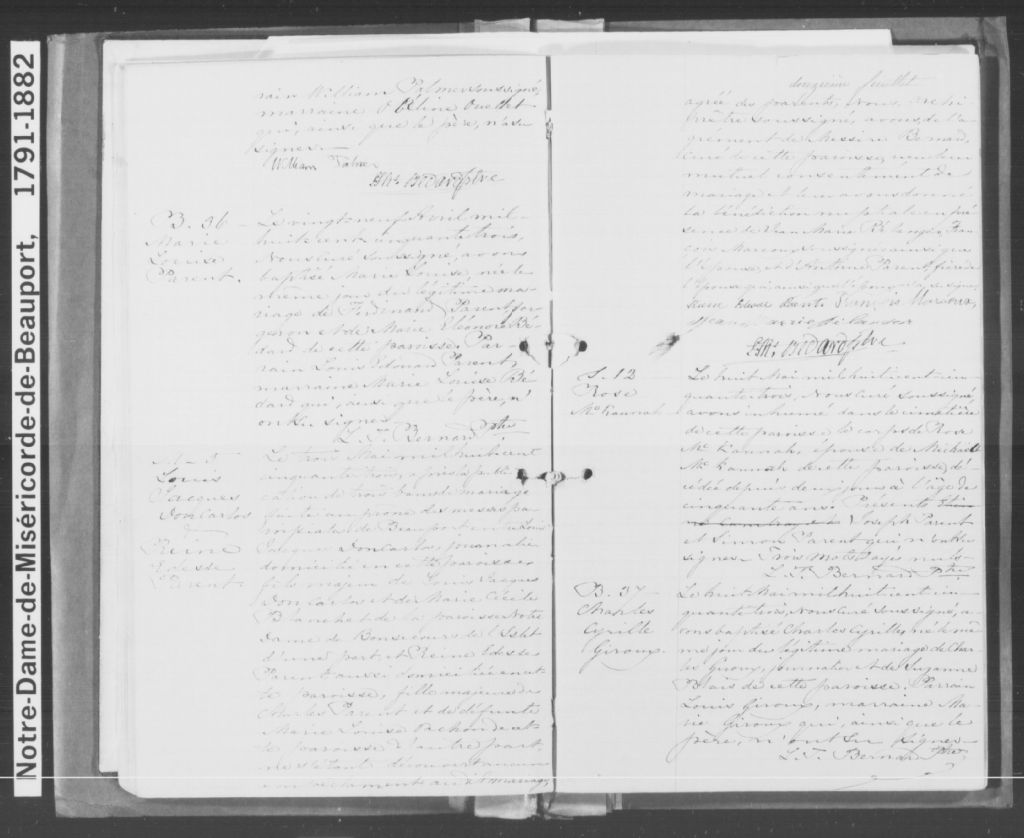 Notre-Dame-de-Miséricorde-de-Beauport, 1791-1882
rain William Palmer soussigné,
marraine Ouellet
qui, ainsi que le père, n'a su
signer.
William Palmer
Ths. Bédard Ptre
B. 36
Marie
Louise
Parent.
Le vingt neuf Avril mil-
huit cent cinquante trois,
Nous Curé soussigné, avons
baptisé Marie Louise, née le
même jour du légitime ma-
riage de Ferdinand Parent, for-
geron et de Marie Eléonore Bé-
dard de cette paroisse. Par-
rain Louis Edouard Parent,
marraine Marie Louise Bé-
dard qui, ainsi que le père, n'
ont su signer.
L. T. Bernard Ptre
Louis
Jacques
Don Carlos
Reine
Edesse
Parent.
Le trois Mai mil huit cent
cinquante trois, après la publi-
cation de trois bans de mariage
faite au prône des messes pa-
roissiales de Beauport entre Louis
Jacques Don Carlos, journalier
domicilié en cette paroisse,
fils majeur de Louis Jacques
Don Carlos et de Marie Cécile
Blanchet de la paroisse Notre
Dame de Bonsecours de l'Islet
d'une part, et Reine Edesse
Parent aussi domiciliée en cet-
te paroisse, fille majeure de
Charles Parent et de défunte
Marie Louise de cet-
te paroisse d'autre part,
ne s'étant découvert aucun
empêchement au dit mariage,
douzième feuillet
agréé des parents, Nous,
Prêtre soussigné, avons, de l'a-
grément de Messire Bernard,
Curé de cette paroisse, reçu leur
mutuel consentement de
mariage et leur avons donné
la bénédiction nuptiale en pré-
sence de Jean Marie Fran-
çois Marcoux soussignés ainsi que
l'épouse, et d'Antoine Parent, frère de
l'épouse qui ainsi que l'époux n'a su signer.
Reine Edesse Parent François Marcoux,
Jean Marie
Ths. Bédard Ptre
S. 12
Rose
Mc Kannah
Le huit Mai mil huit cent cin-
quante trois, Nous Curé soussigné,
avons inhumé dans le cimetière
de cette paroisse le corps de Rose
Mc Kannah, épouse de Michael
Mc Kannah de cette paroisse, dé-
cédée depuis deux jours à l'âge de
cinquante ans. Présents
Joseph Parent
et Simon Parent qui n'ont su
signer. Trois mots rayés nuls.
L. T. Bernard Ptre
B. 37
Charles
Cyrille
Giroux.
Le huit Mai mil huit cent cin-
quante trois, Nous Curé soussigné, a-
vons baptisé Charles Cyrille, né le mê-
me jour du légitime mariage de Char-
les Giroux, journalier et de Suzanne
Blais de cette paroisse. Parrain
Louis Giroux, marraine Ma-
rie Giroux qui, ainsi que le
père, n'ont su signer.
L. T. Bernard Ptre